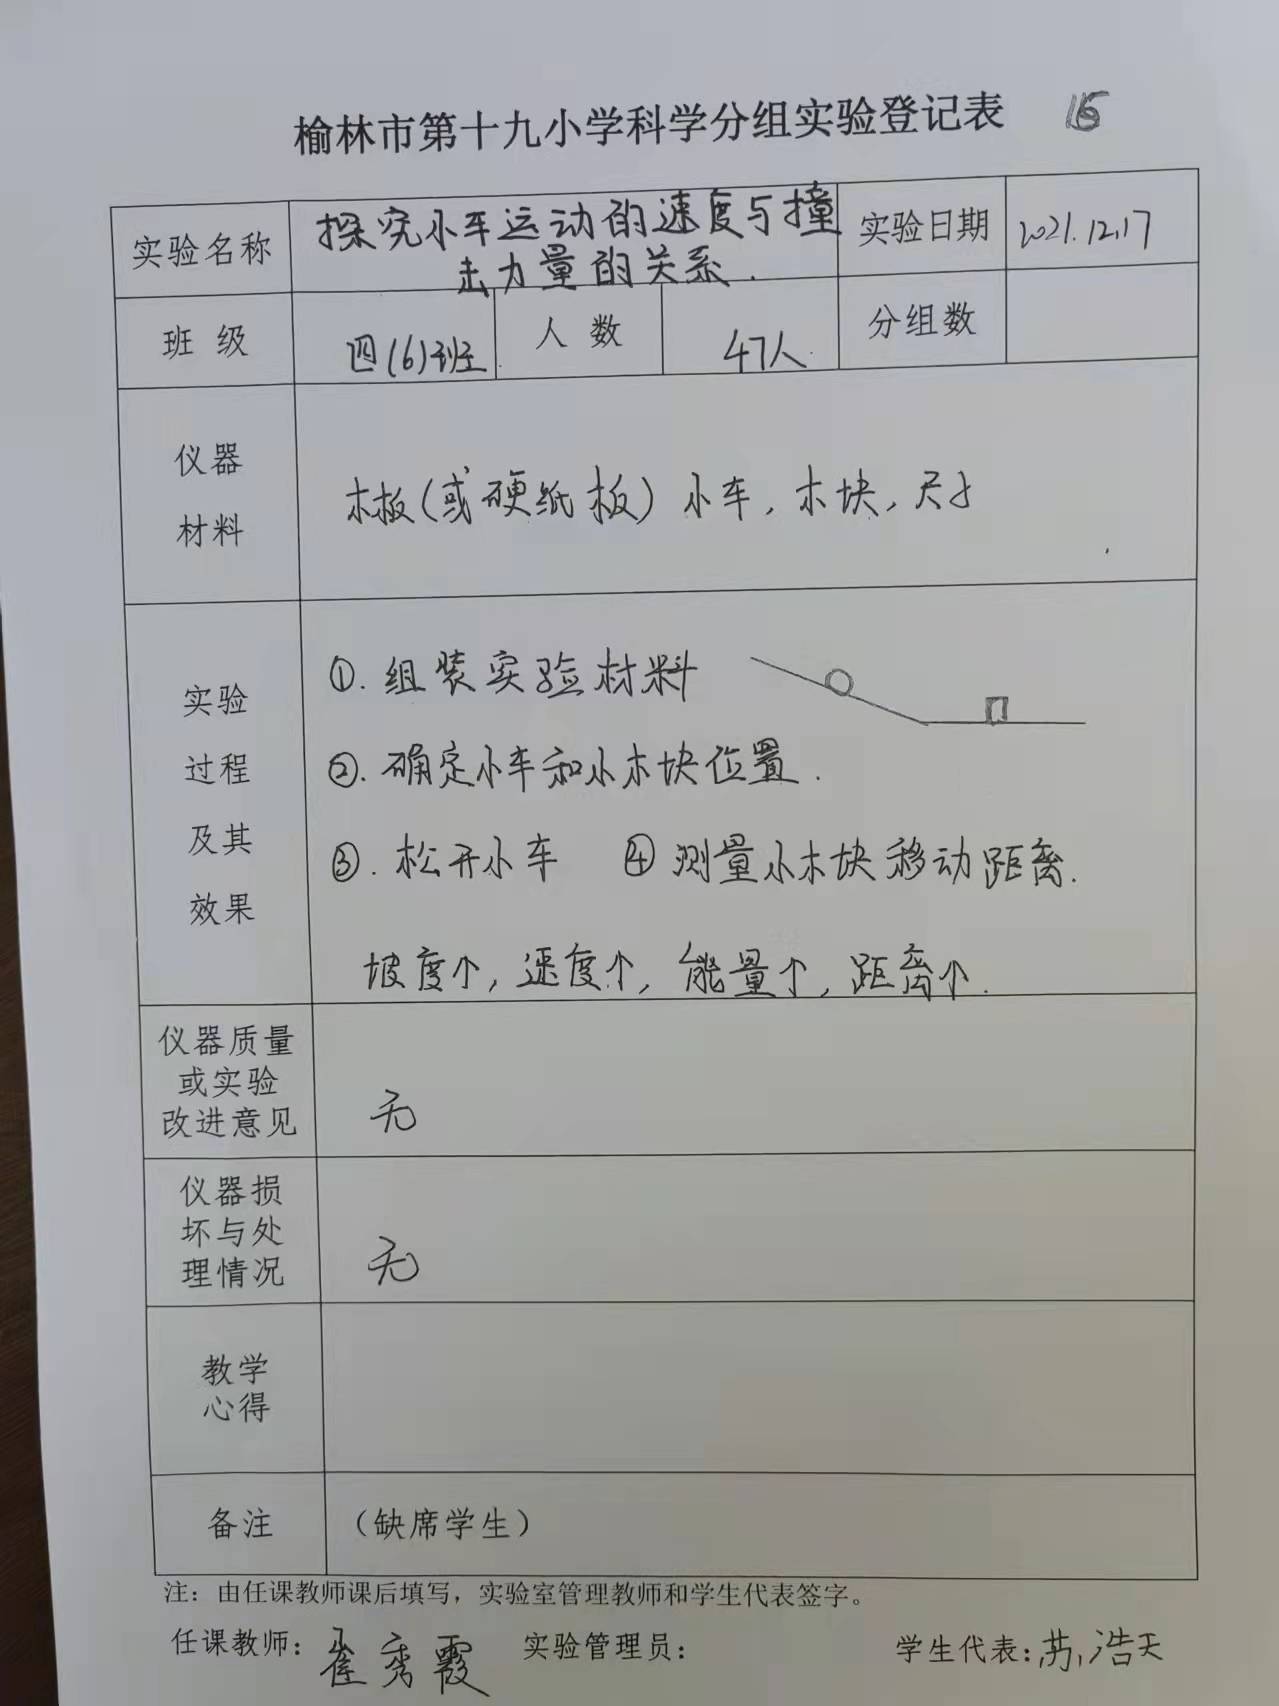 榆林市第十九小学科学分组实验登记表
实验名称 探究小车运动的速度与撞击力量的关系. 实验日期 2021.12.17
班 级 四(6)班. 人 数 47人. 分组数
仪器
材料
木板(或硬纸板) 小车, 木块, 尺子
实验
过程
及其
效果
①. 组装实验材料
②. 确定小车和小木块位置.
③. 松开小车 ④ 测量小木块移动距离.
坡度个, 速度个, 能量个, 距离个.
仪器质量
或实验
改进意见
无
仪器损
坏与处
理情况
无
教学
心得
备注 （缺席学生）
注：由任课教师课后填写，实验室管理教师和学生代表签字。
任课教师：崔秀霞 实验管理员： 学生代表：苏浩天